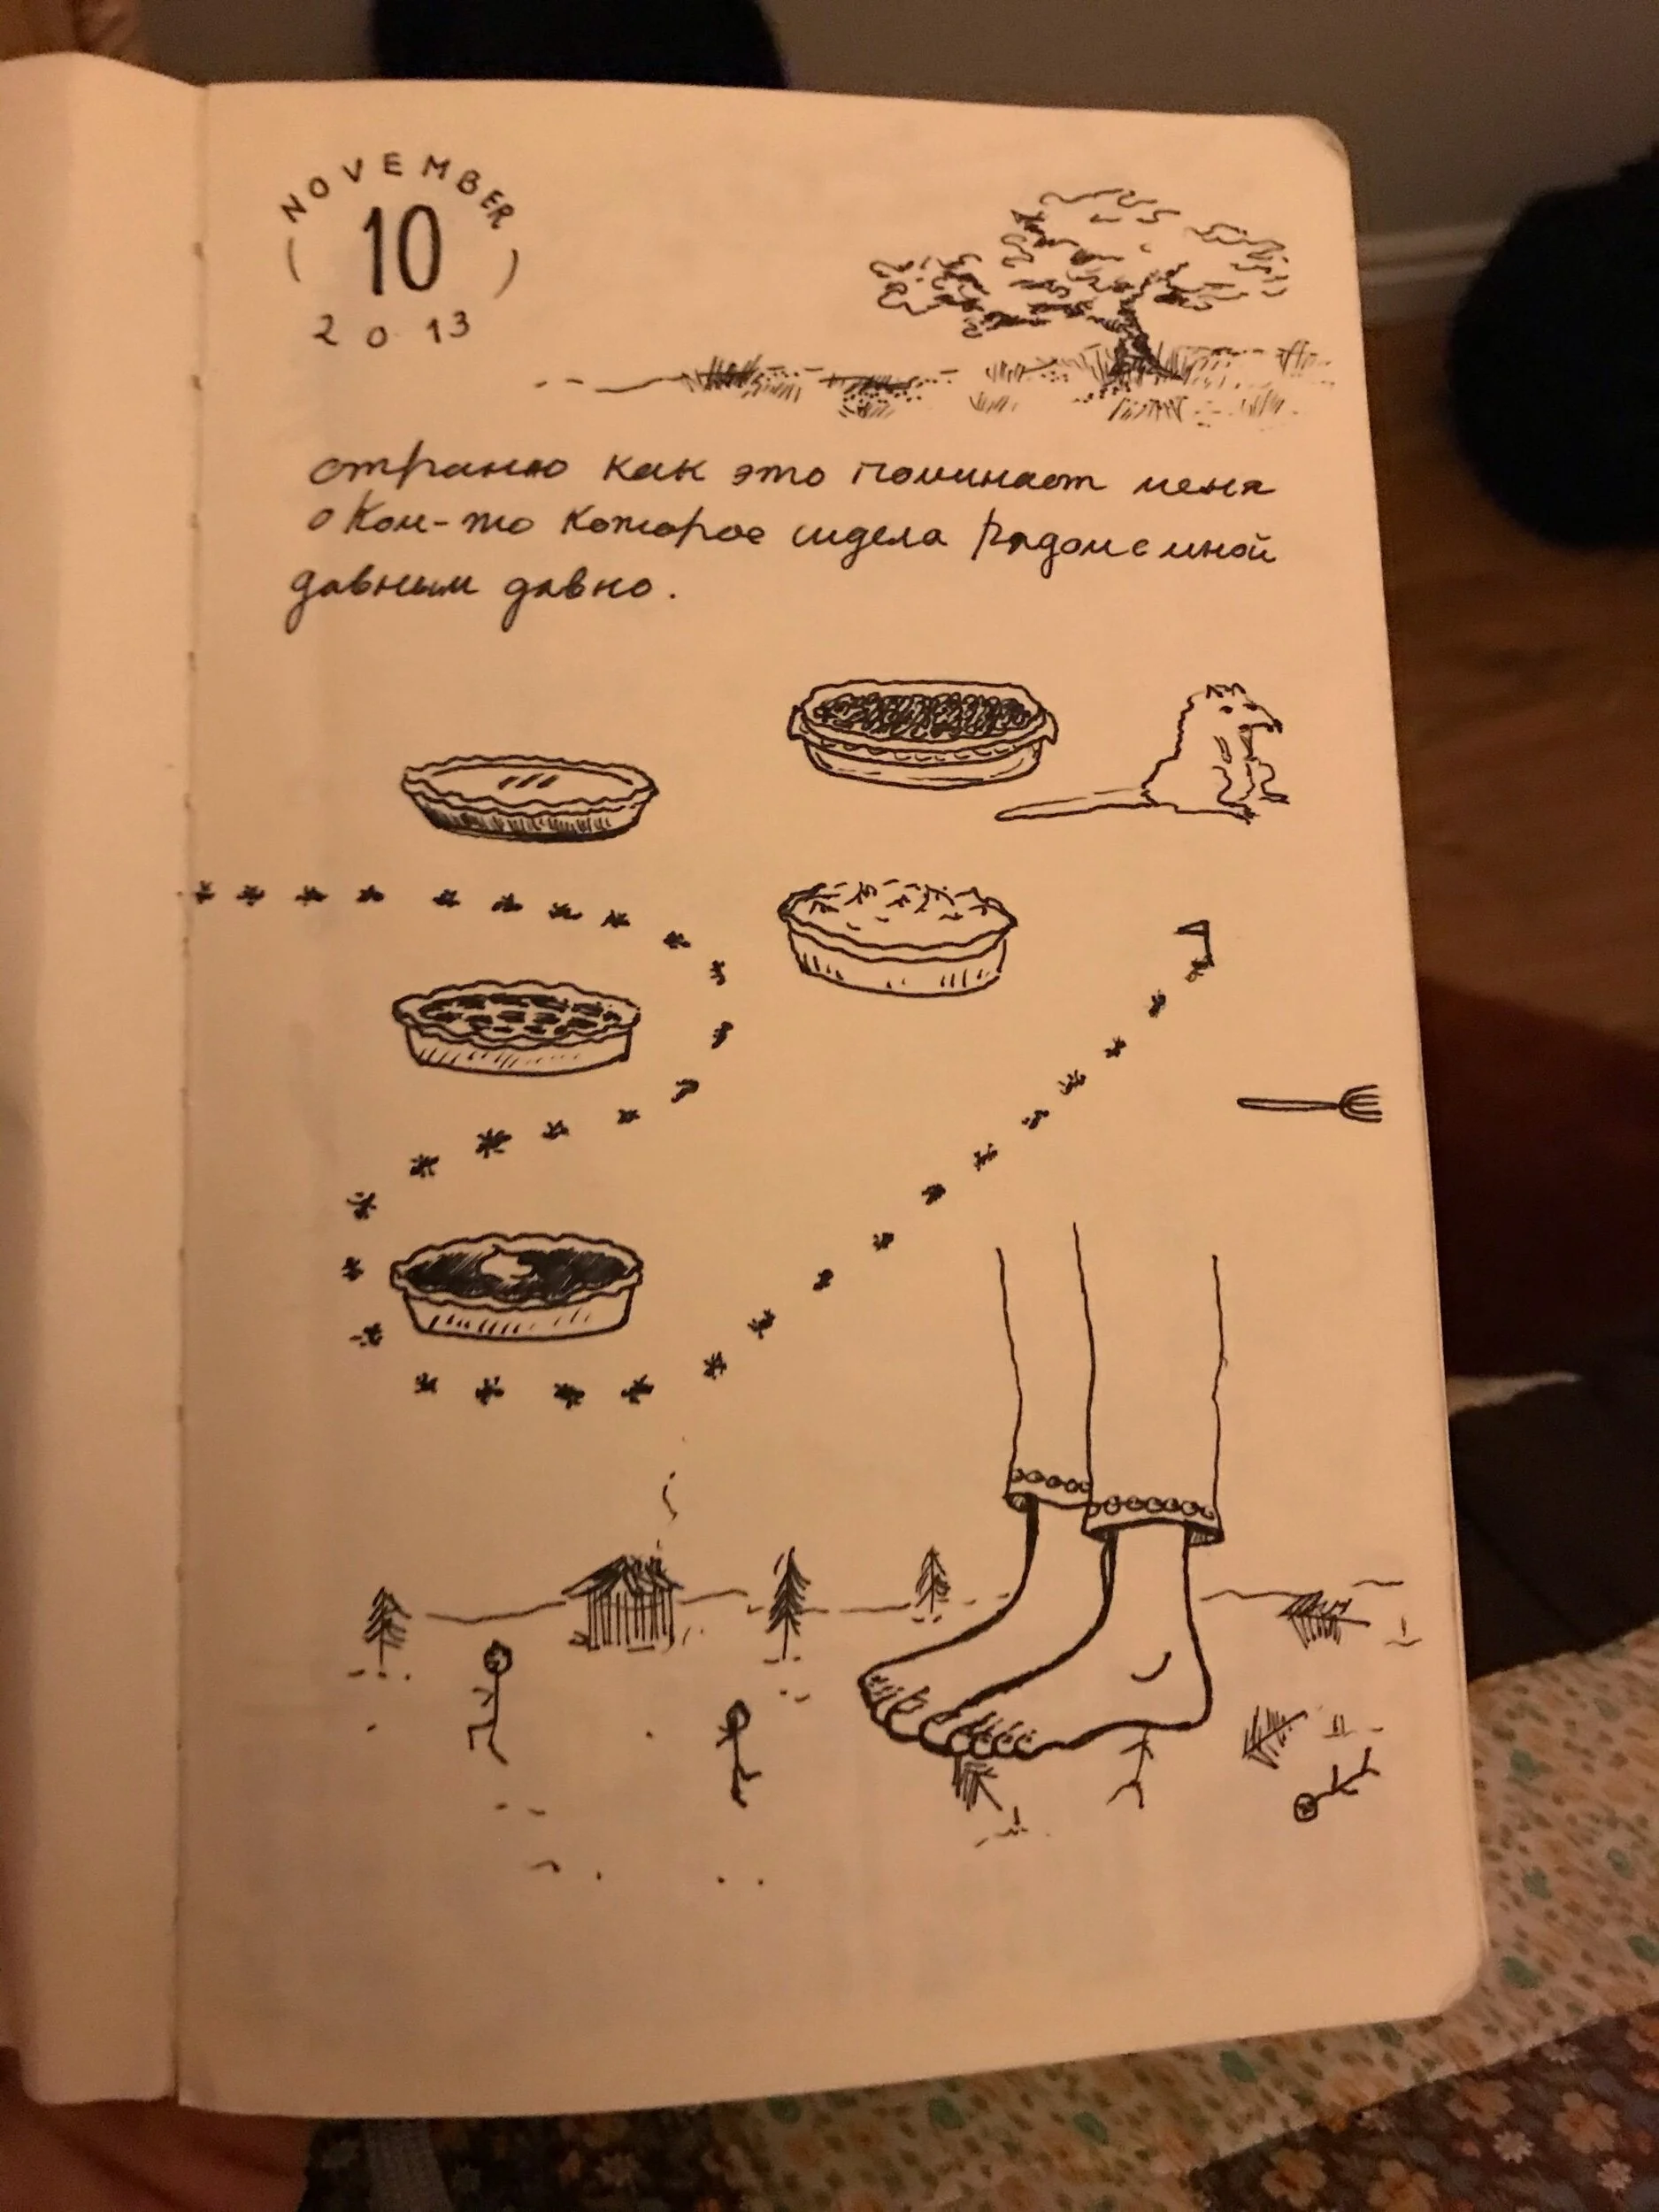 NOVEMBER
10
2013
странно как это поминает меня
о ком-то которое сидела рядом с мной
давным давно.